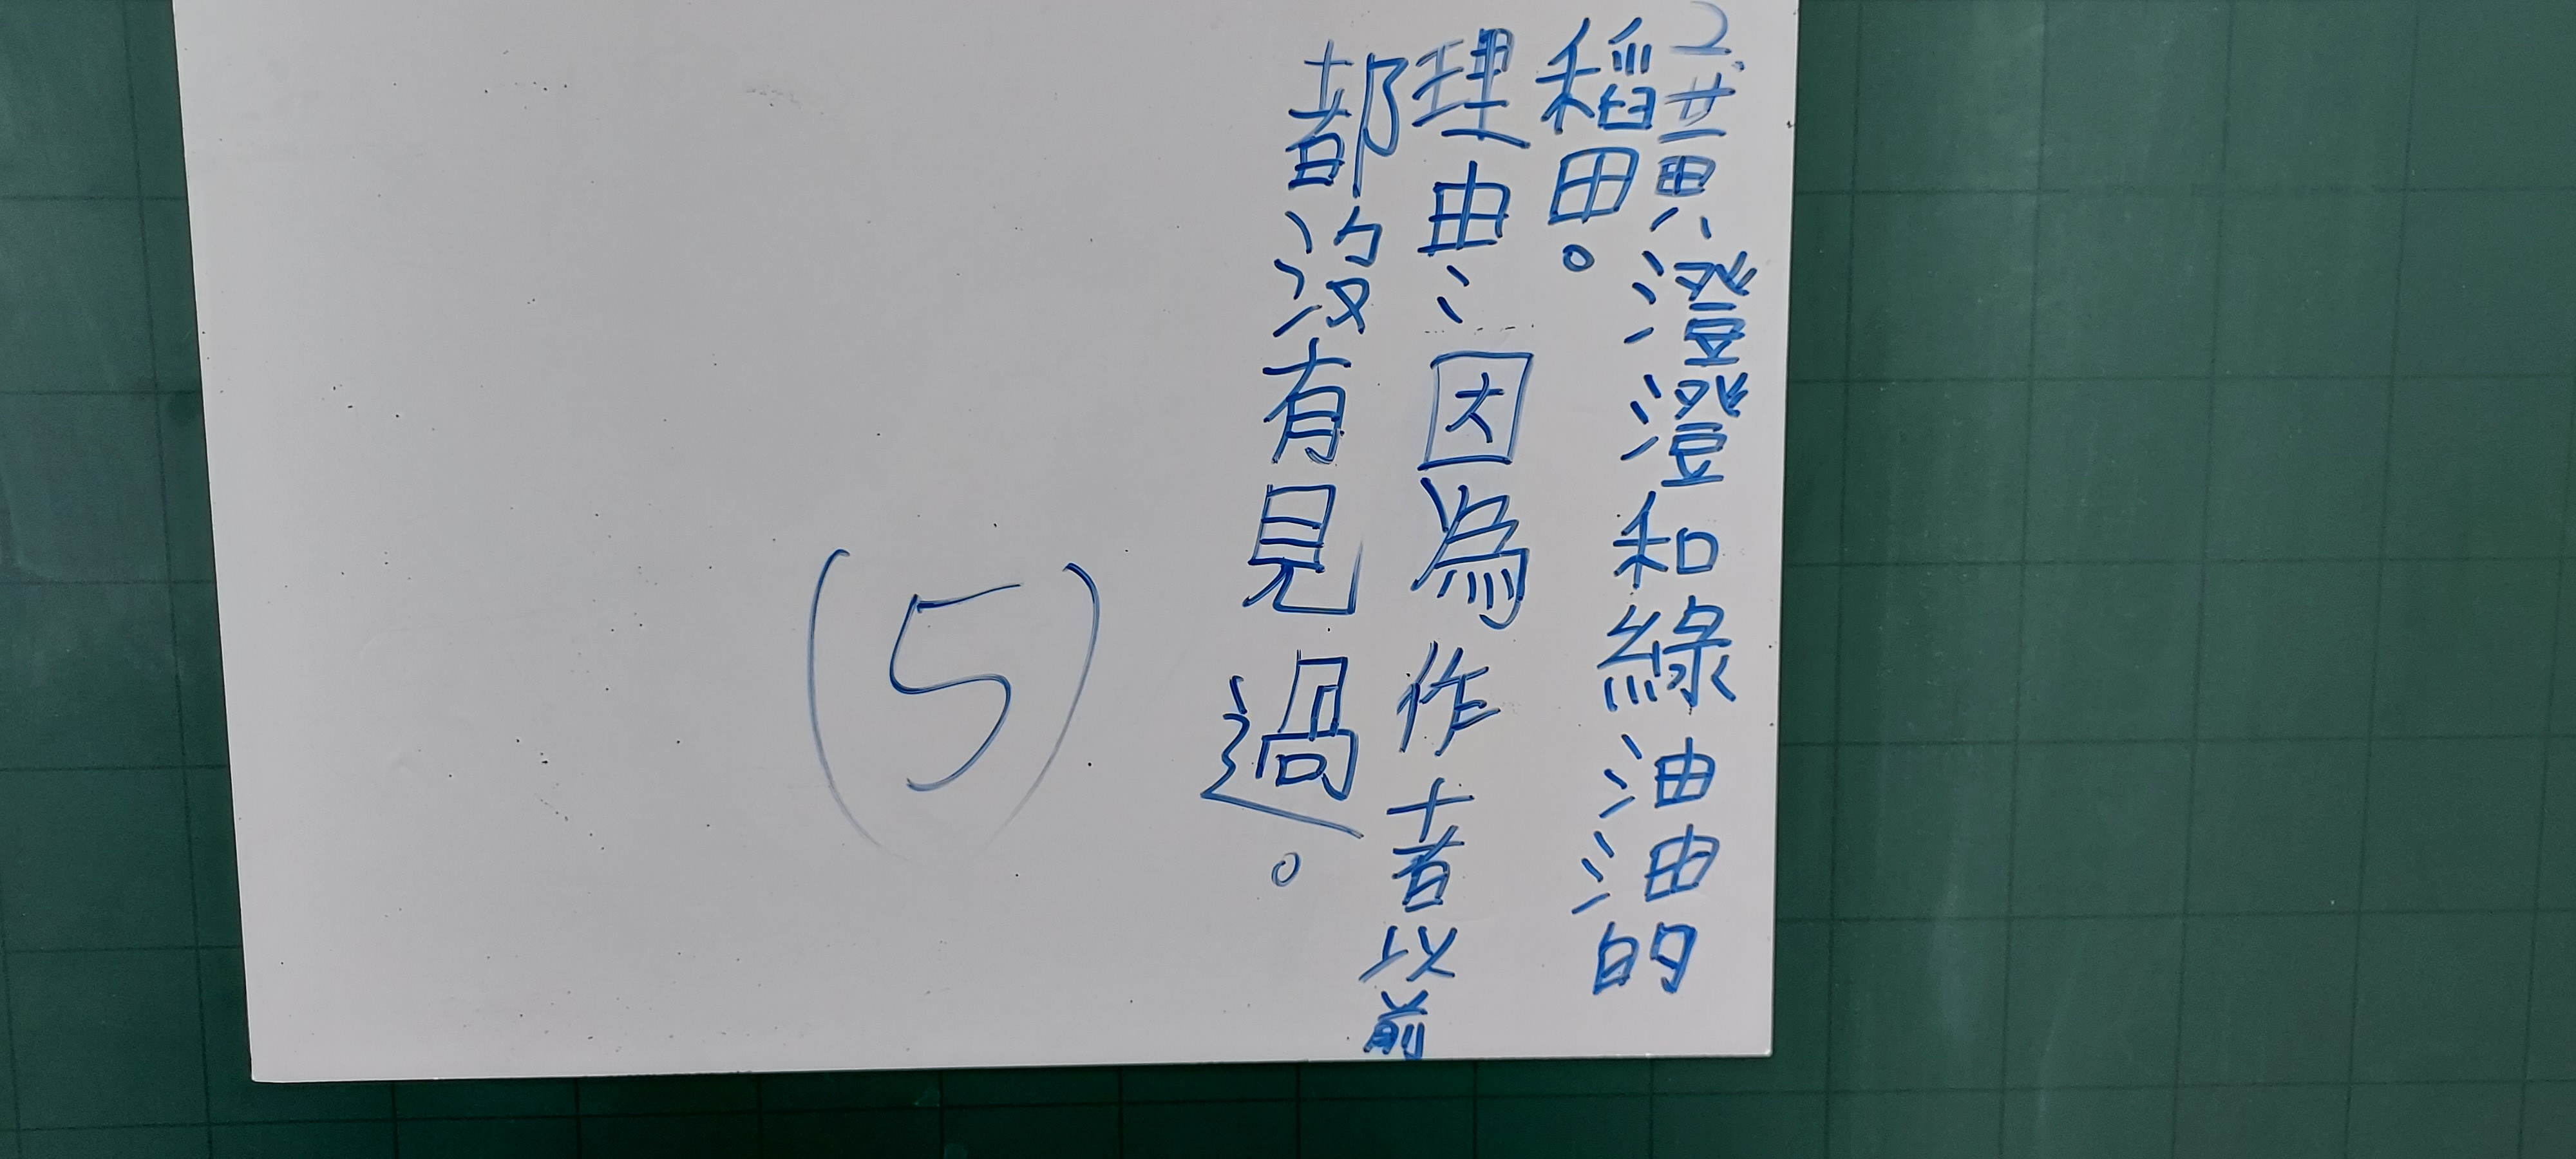 2.黃澄澄和綠油油的
稻田。
理由：因為作者以前
都沒有見過。
(5)